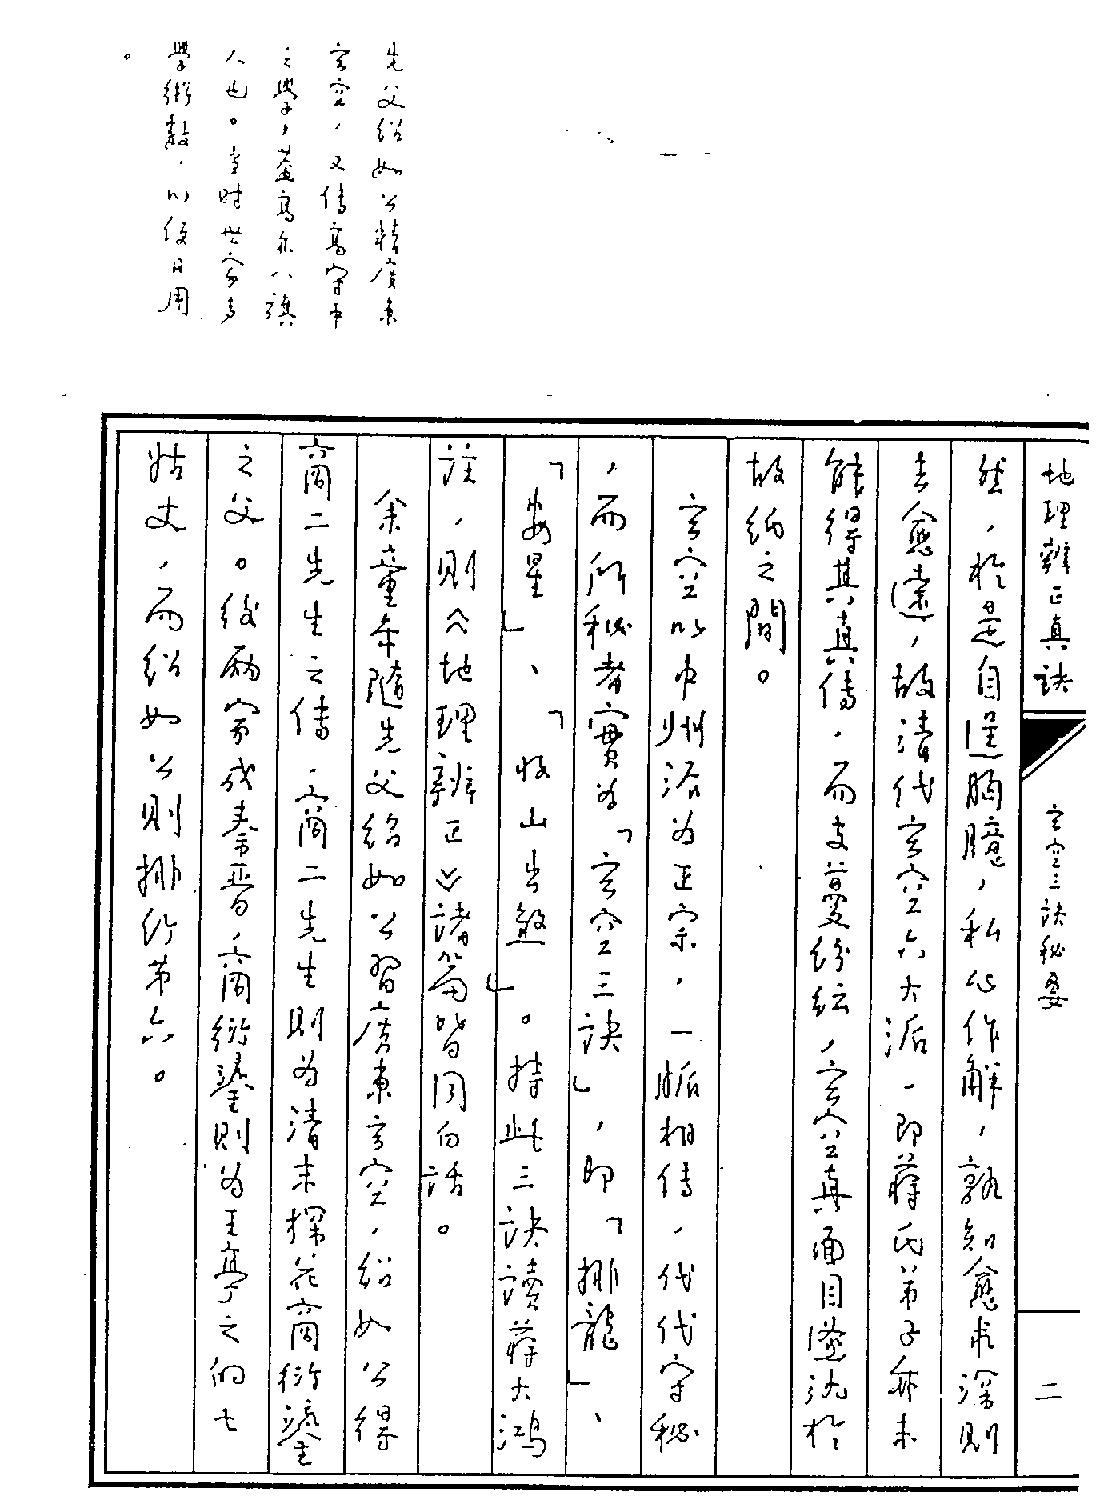 地理辨正真訣
玄空三訣秘要
二
然，於是自逞胸臆，私心作解，孰知愈求深則
去愈遠，故清代玄空六大派，即蔣氏弟子亦未
能得其真傳，而支蔓紛紜，玄空真面目遂沈於
故紙之間。
玄空以中州派為正宗，一脈相傳，代代守秘
，而所秘者實為「玄空三訣」，即「排龍」、
「安星」、「收山出煞」。持此三訣讀蔣大鴻
註，則《地理辨正》諸篇皆同白話。
余童年隨先父紹如公習廣東玄空，紹如公得
商二先生之傳，商二先生則為清末探花商衍鎏
之父。後兩家成秦晉，商衍鎏則為王亭之的七
姑丈，而紹如公則排行第六。
先父紹如公精廣東
玄空，又傳高家
之學，蓋高亦八旗
人也。當時世家多
學術數，以後日用
。